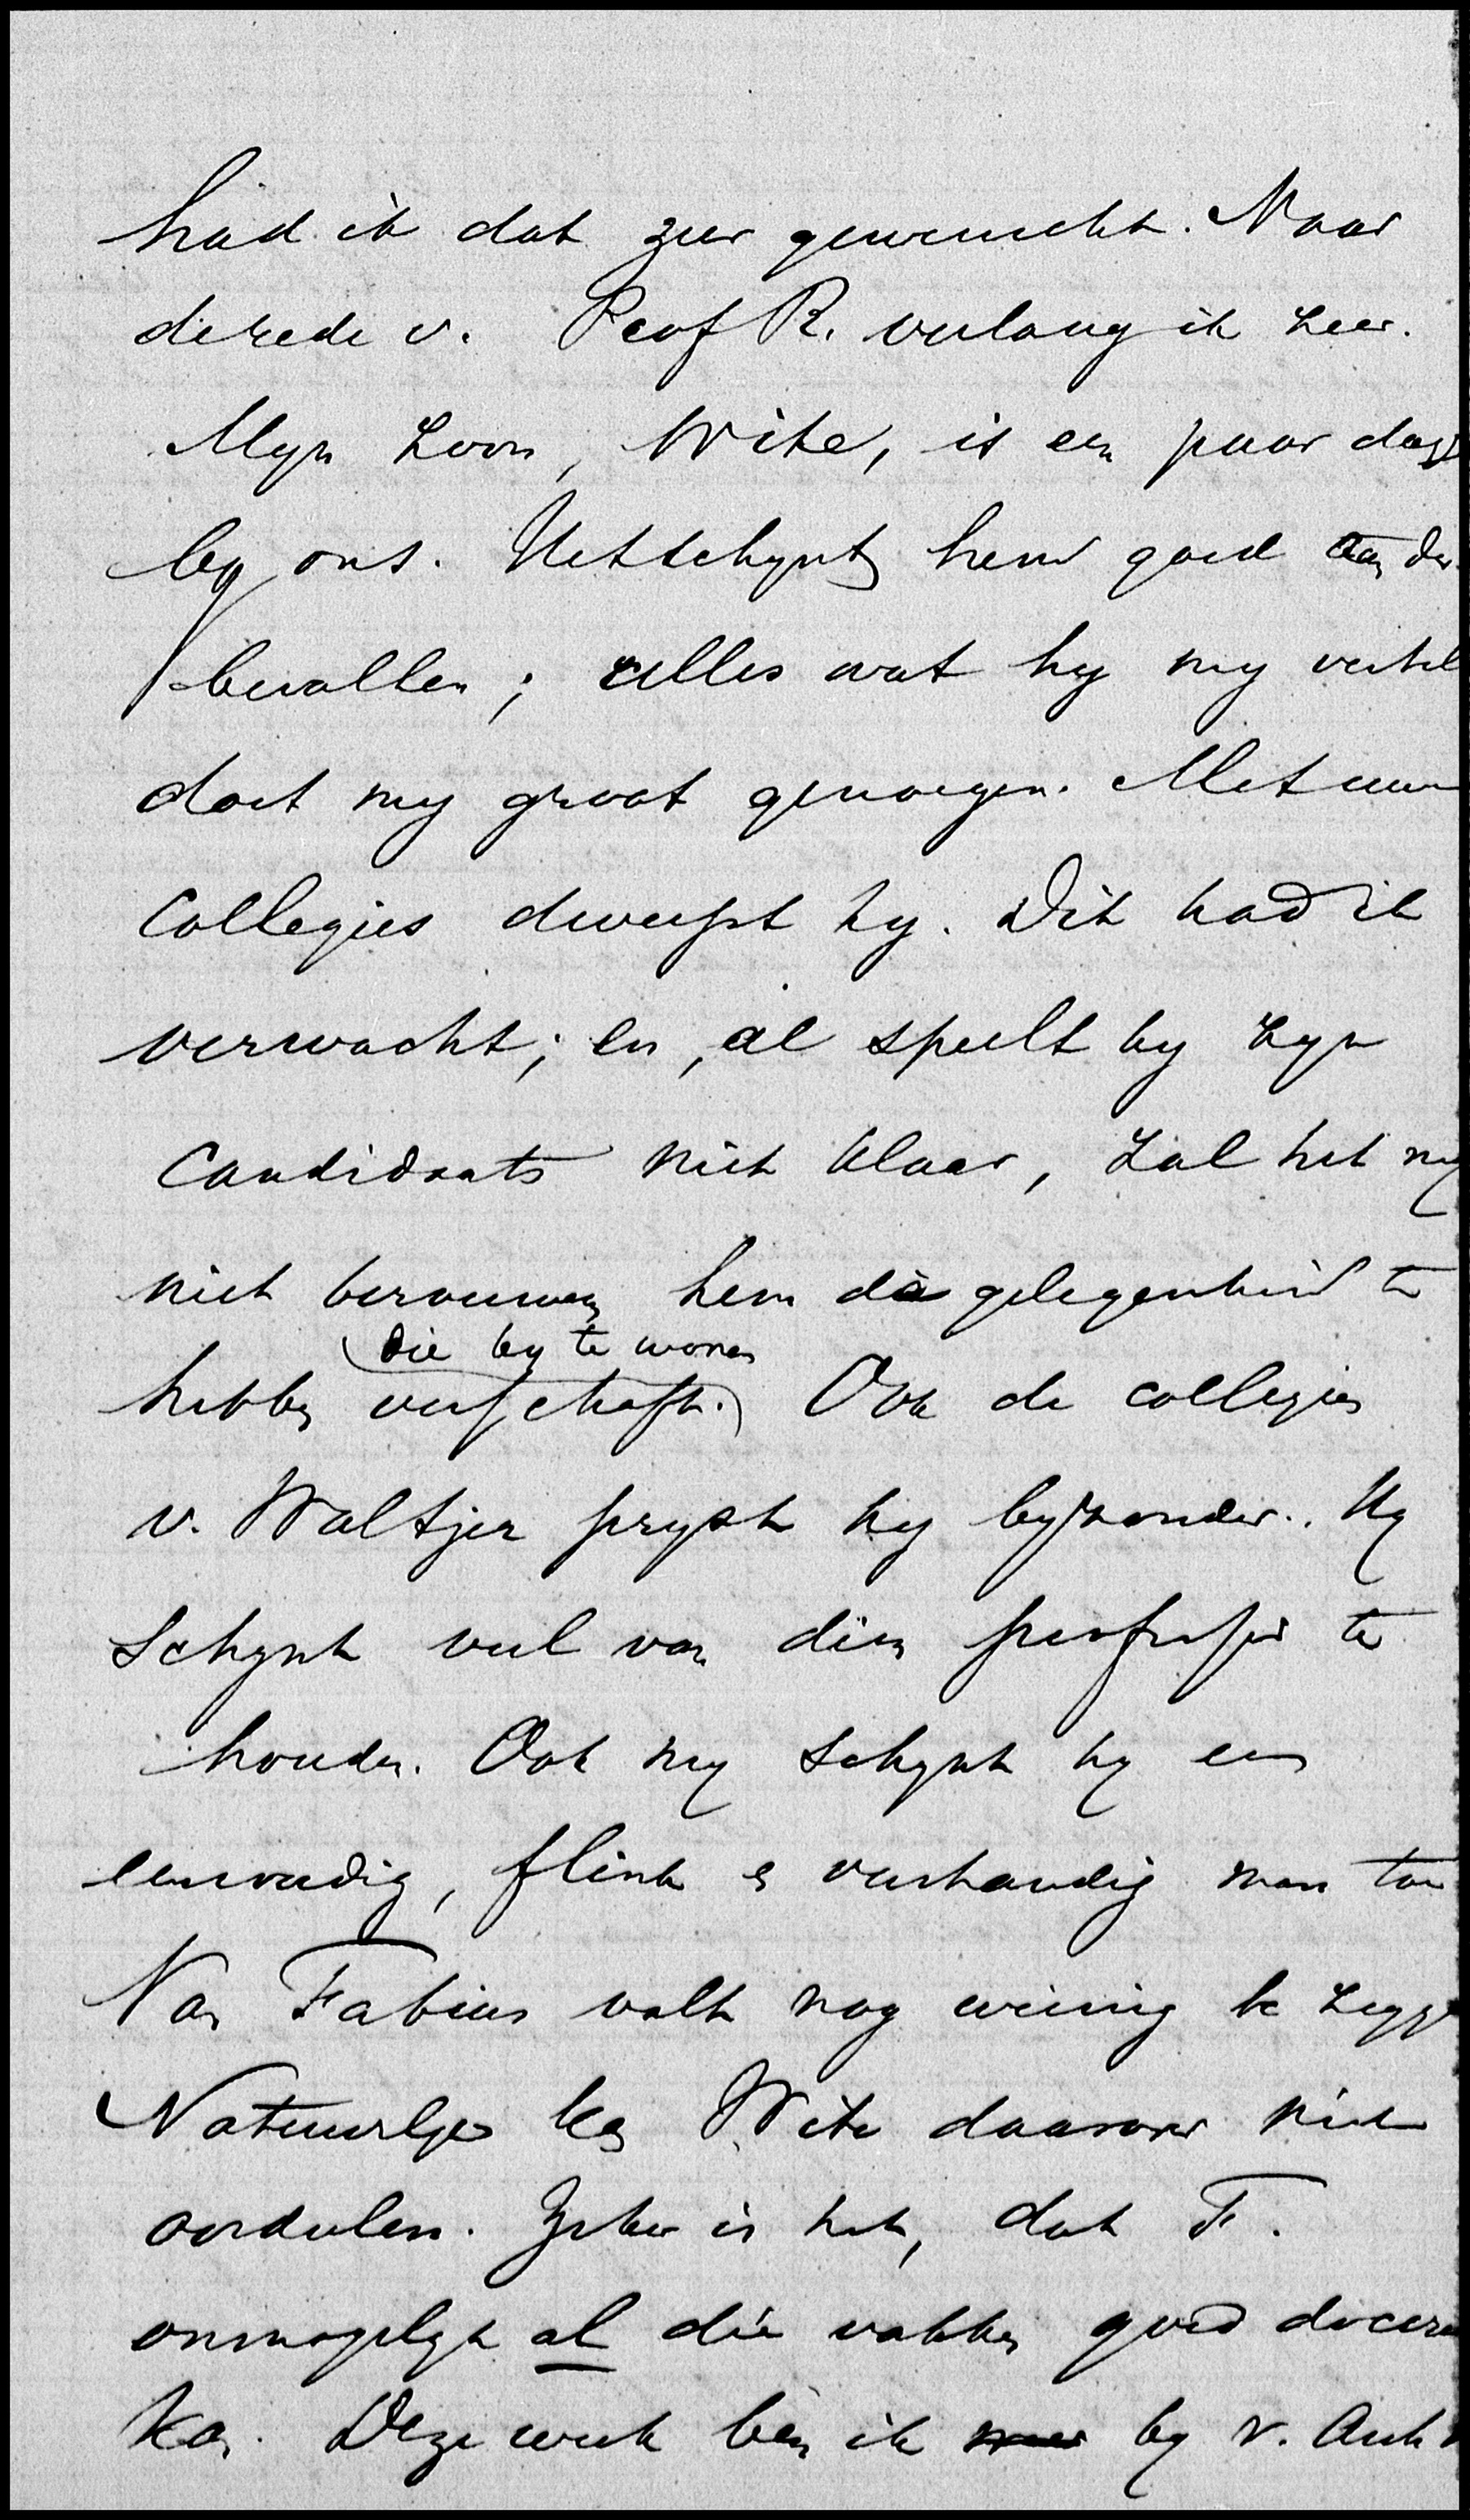 had ik dat zeer gewenscht. Naar
de rede v. Prof R. verlang ik zeer.
Myn zoon, Wite, is een paar dag
by ons. Het schynt hem goed te
bevallen; alles wat hy my vertel
doet my groot genoegen. Met uw
Collegies dweept hy. Dit had ik
verwacht; en, al speelt hy zyn
Candidaats niet klaar, zal het my
niet berouwen hem de gelegenheid te
die by te wonen
hebben verschaft. Ook de collegies
v. Woltjer pryst hy byzonder. Hy
schynt veel van dien professor te
houden. Ook my schynt hy een
eenvoudig, flink en verstandig man toe
Van Fabius valt nog weinig te zegge
Natuurlyk kan Wite daarover niet
oordeelen. Zeker is het, dat F.
onmogelyk al die vakken goed docere
kan. Deze week ben ik by v. Ark